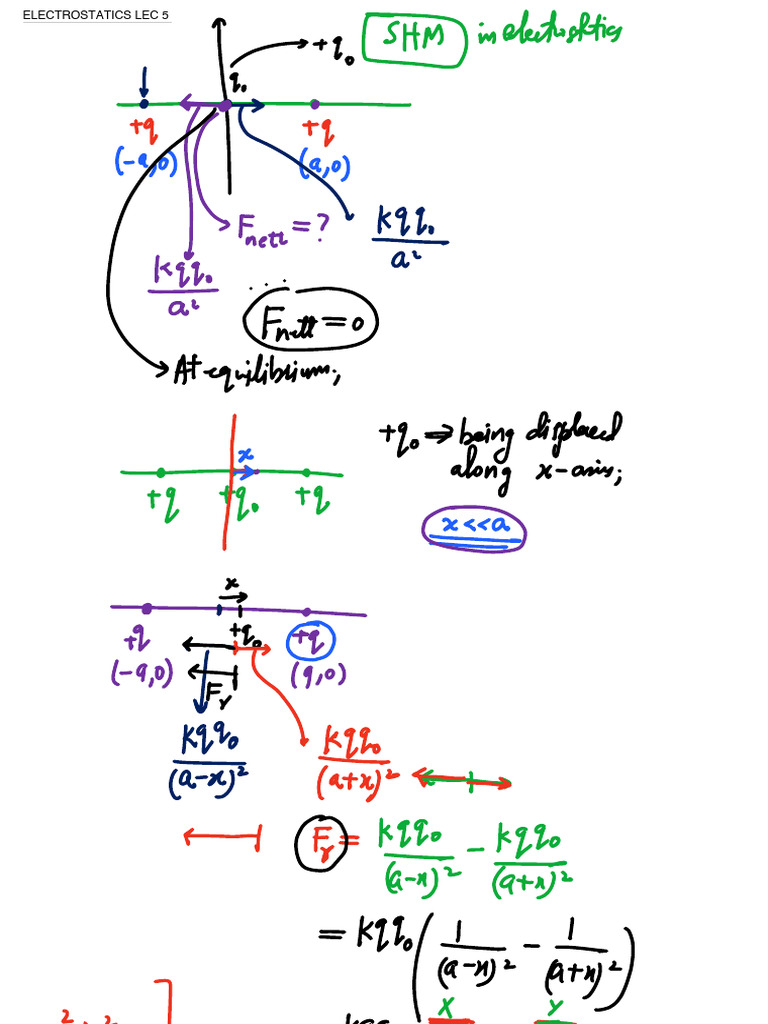 ELECTROSTATICS LEC 5
SHM in electrostatics
+q₀
q₀
+q +q
(-a,0) (a,0)
Fnett = ?
kqq₀/a²
kqq₀/a²
Fnett = 0
At equilibrium;
+q₀ ⇒ being displaced
along x-axis;
x
+q +q₀ +q
x<<a
x
+q +q₀ +q
(-a,0) (a,0)
Fr
kqq₀/(a-x)² kqq₀/(a+x)²
Fr = kqq₀/(a-x)² - kqq₀/(a+x)²
= kqq₀ ( 1/(a-x)² - 1/(a+x)² )
X Y